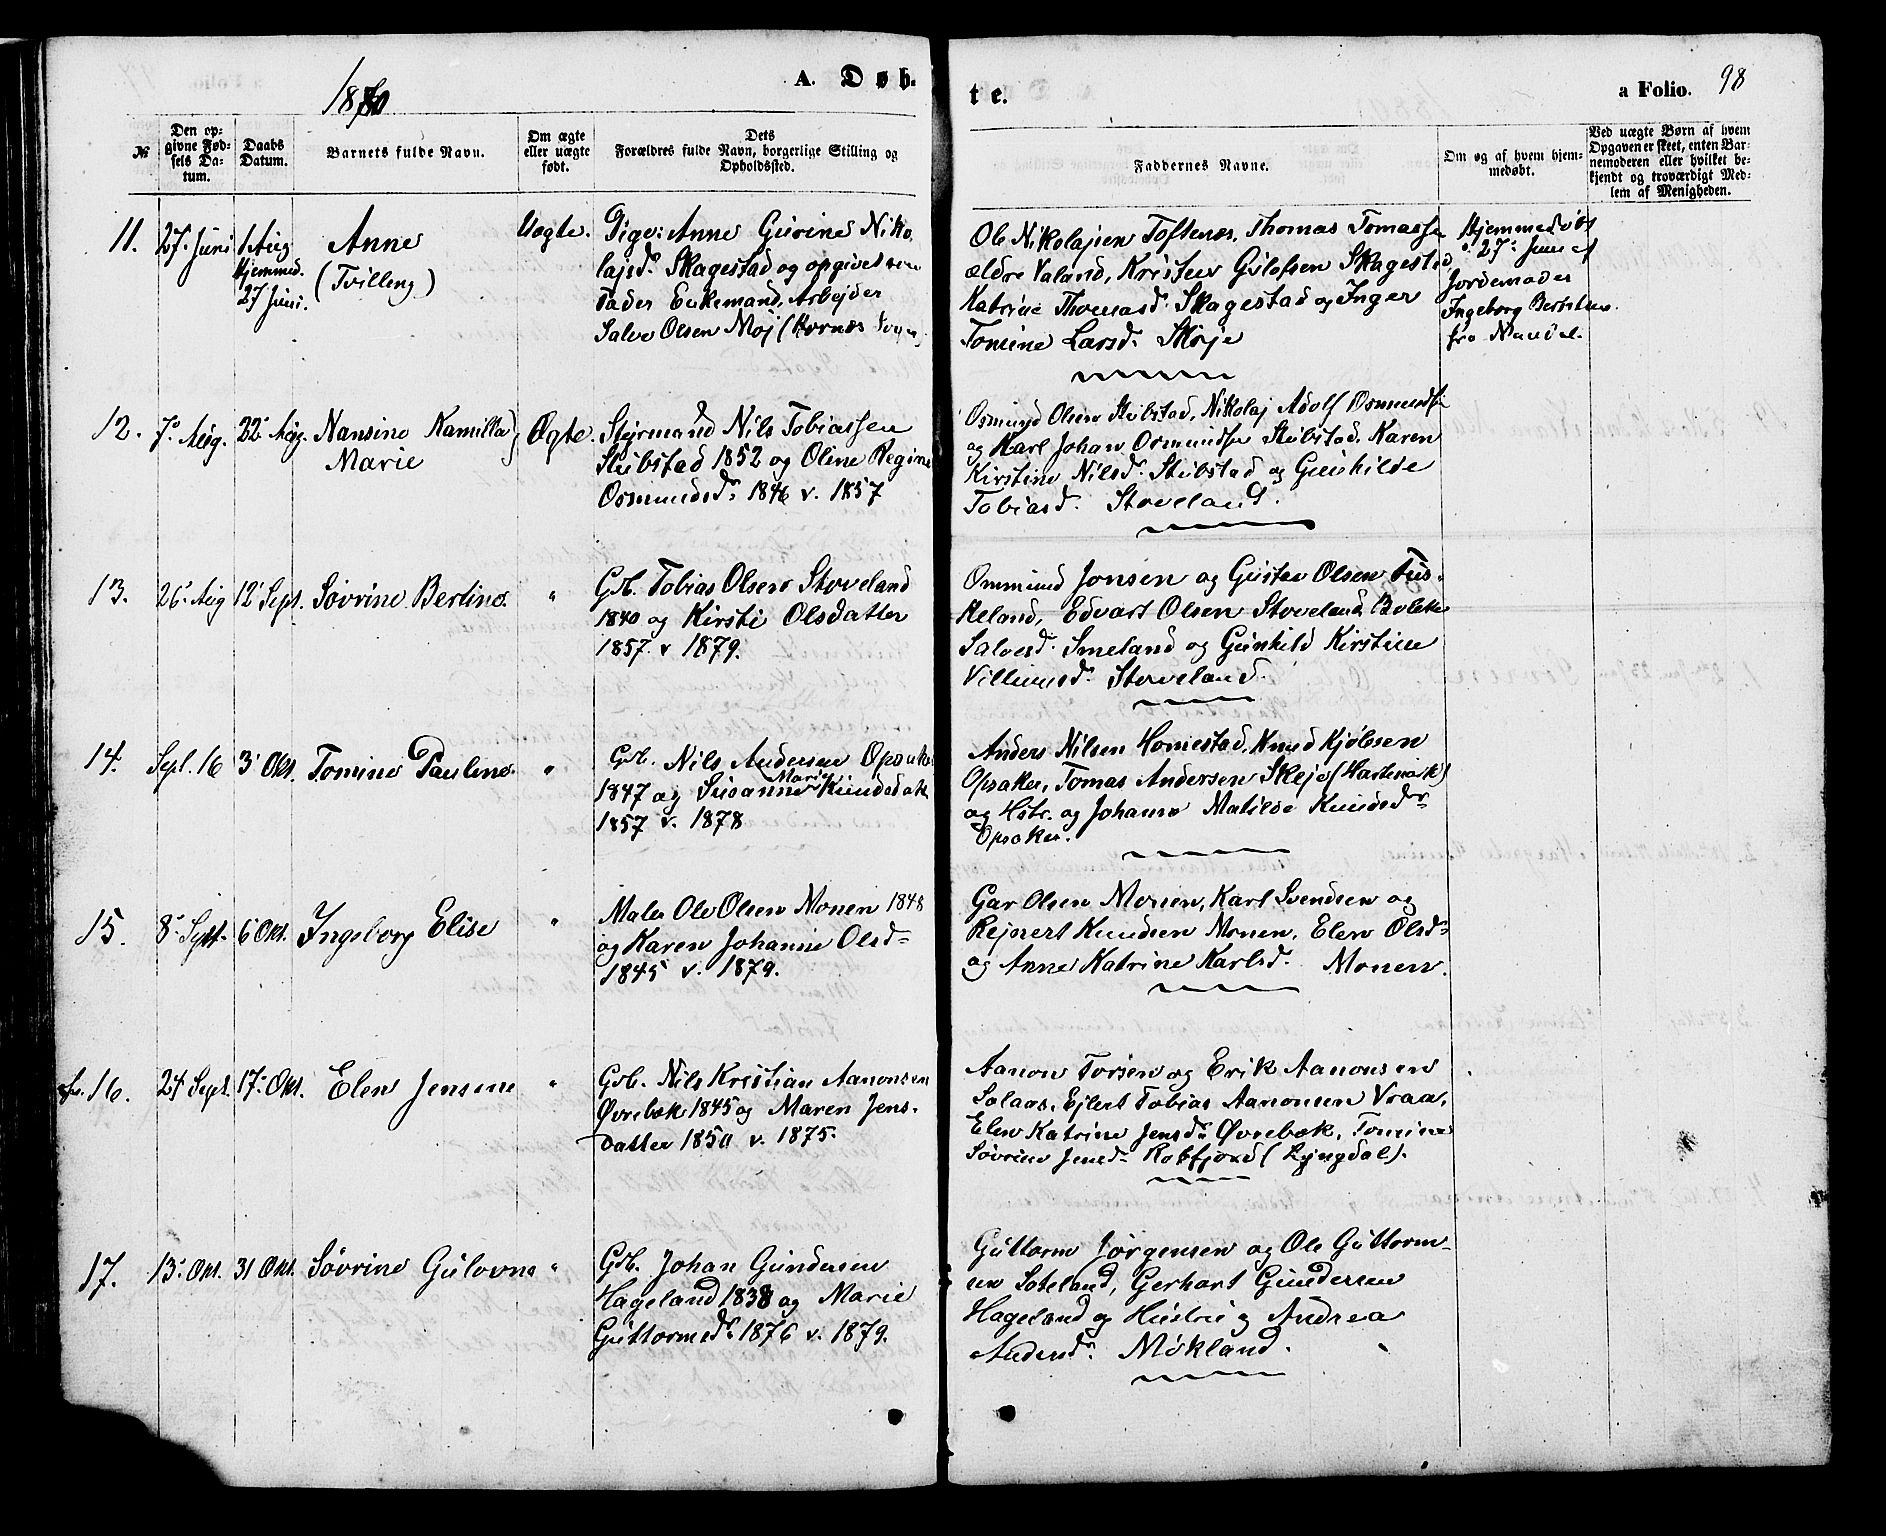 1880
A. Døb-
te.
a Folio. 98
№
Den op-
givne Fød-
sels Da-
tum.
Daabs
Datum.
Barnets fulde Navn.
Om ægte
eller uægte
født.
Dets
Forældres fulde Navn, borgerlige Stilling og
Opholdssted.
Faddernes Navne.
Om og af hvem hjem-
medøbt.
Ved uægte Børn af hvem
Opgaven er skeet, enten Bar-
nemoderen eller hvilket be-
kjendt og troværdigt Med-
lem af Menigheden.
11.
27. Juni
1 Aug
Hjemmed.
27 Juni.
Anne
(Tvilling)
Uægte.
Pige: Anne Gurine Niko-
lajsd. Skagestad og opgivet som
Fader Enkemand, Arbejder
Salve Olsen Moj
Ole Nikolajsen Toftenes, Thomas Tomasse
ældre Valand, Kristen Gulofsen Skagestad
Katrine Thomasd. Skagestad og Inger
Tomine Larsd. Skøje
Hjemmedøbt
27. Juni af
Jordemoder
Ingeborg Bertelsen
fra Mandal.
12.
7. Aug.
22. Aug.
Nansine Kamilla
Marie
Ægte.
Styrmand Nils Tobiassen
Stubstad 1852 og Oline Regine
Osmundsd. 1846 v. 1857
Osmund Olsen Stubstad, Nikolaj Adolf Osmunds
og Karl Johan Osmundsen Stubstad, Karen
Kirstine Nilsd. Stubstad og Gunhilde
Tobiasd. Stoveland.
13.
26. Aug
12 Sept.
Søvrine Bertine.
"
Gb. Tobias Olsen Stoveland
1840 og Kirsti Olsdatter
1857 v 1879.
Ommund Jonsen og Gustav Olsen Tus-
keland, Edvart Olsen Stoveland Bolette
Salvesd. Smeland og Gunhild Kirstine
Villumsd. Stoveland.
14.
Sept. 16
3. Okt.
Tomine Pauline.
"
Gb. Nils Andersen Opsaker
1847 og Susanne Marie Knudsdat.
1857 v. 1878
Anders Nilsen Homestad, Knud Kjølsen
Opsaker, Tomas Andersen Skeje (Hartmark)
og Hstr. og Johanne Matilde Knudsdr
Opsaker.
15.
8. Sept.
6 Okt.
Ingeborg Elise
"
Maler Ole Olsen Monen 1848
og Karen Johanne Olsd
1845 v. 1879.
Gar Olsen Monen, Karl Svendsen og
Rejnert Knudsen Monen, Elen Olsd
og Anne Katrine Karlsd. Monen.
16.
24 Sept.
17. Okt.
Elen Jensine
"
Gb. Nils Kristian Aanonsen
Øvrebøk 1845 og Maren Jens-
datter 1850 v. 1875.
Aanon Torsen og Erik Aanonsen
Solaas, Ejlert Tobias Aanonsen Vraa,
Elen Katrine Jensd. Øvrebøk, Tomine
Søvrine Jensd. Rosfjord (Lyngdal).
17.
13. Okt.
31 Okt.
Søvrine Gulovne
"
Gb. Johan Gundersen
Hageland 1838 og Marie
Guttormsd. 1876 v. 1879.
Guttorm Jørgensen og Ole Guttorm-
sen Soteland, Gerhart Gundersen
Hageland og Hustru og Andrea
Andersd. Møkland.